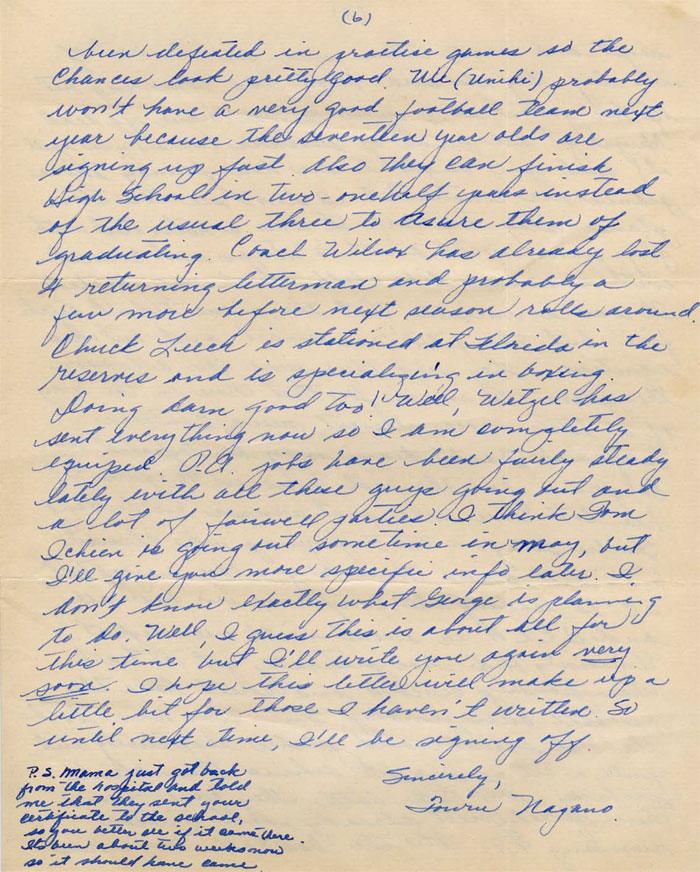 (6)
been defeated in practise games so the
chances look pretty good. We (Unihi) probably
won't have a very good football team next
year because the seventeen year olds are
signing up fast. Also they can finish
High School in two-one half years instead
of the usual three to asure them of
graduating. Coach Wilcox has already lost
4 returning letterman and probably a
few more before next season rolls around.
Chuck Leech is stationed at Florida in the
reserves and is specializing in boxing
Doing darn good too! Well, Wetzel has
sent everything now so I am completely
equiped. P.A. jobs have been fairly steady
lately with all these guys going out and
a lot of fairwell parties. I think Tom
Ichien is going out sometime in may, but
I'll give you more specific info later. I
don't know exactly what George is planning
to do. Well, I guess this is about all for
this time but I'll write you again very
soon. I hope this letter will make up a
little bit for those I haven't written. So
until next time, I'll be signing off.
Sincerely,
Nagano.
P.S. Mama just got back
from the hospital and told
me that they sent your
certificate to the school,
so you better see if it came there.
It's been about two weeks now
so it should have came.